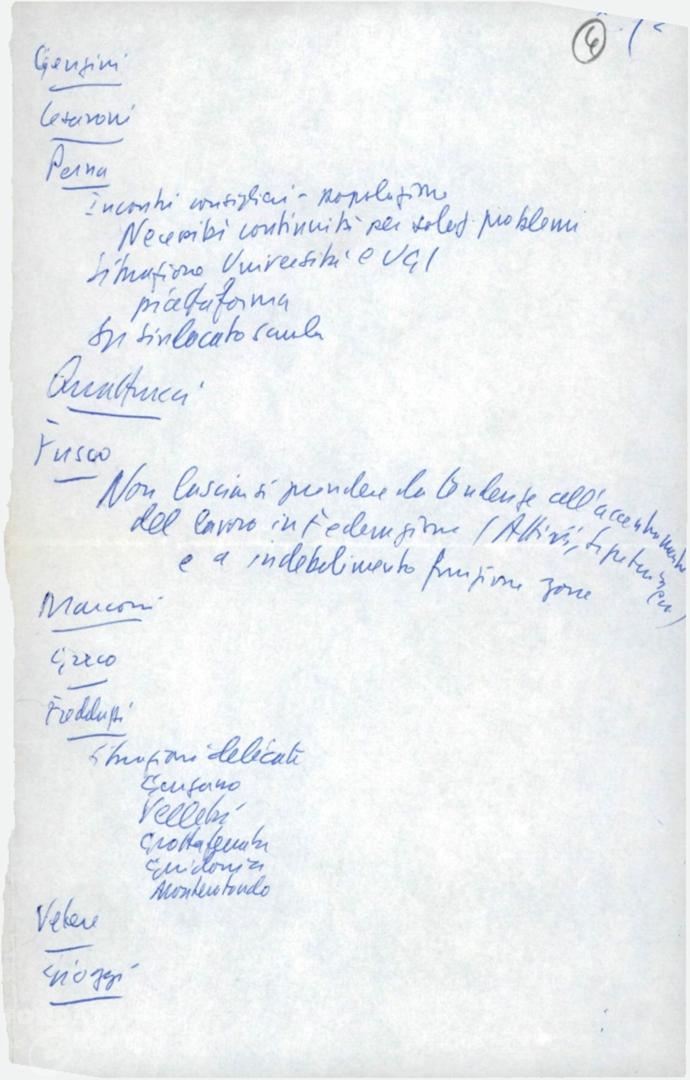 6
Gensini
Cesaroni
Perna
Incontri consiglieri - popolazione
Necessità continuità per soluz problemi
Situazione Università e UGI
piattaforma
scuola
Quattrucci
Fusco
Non lasciarsi prendere da tendenze all'accentramento
del lavoro in Federazione (Attivi,
e a indebolimento funzione zone
Marconi
Greco
Freddupi
Situazioni delicate
Genzano
Velletri
Grottaferrata
Guidonia
Monterotondo
Vetere